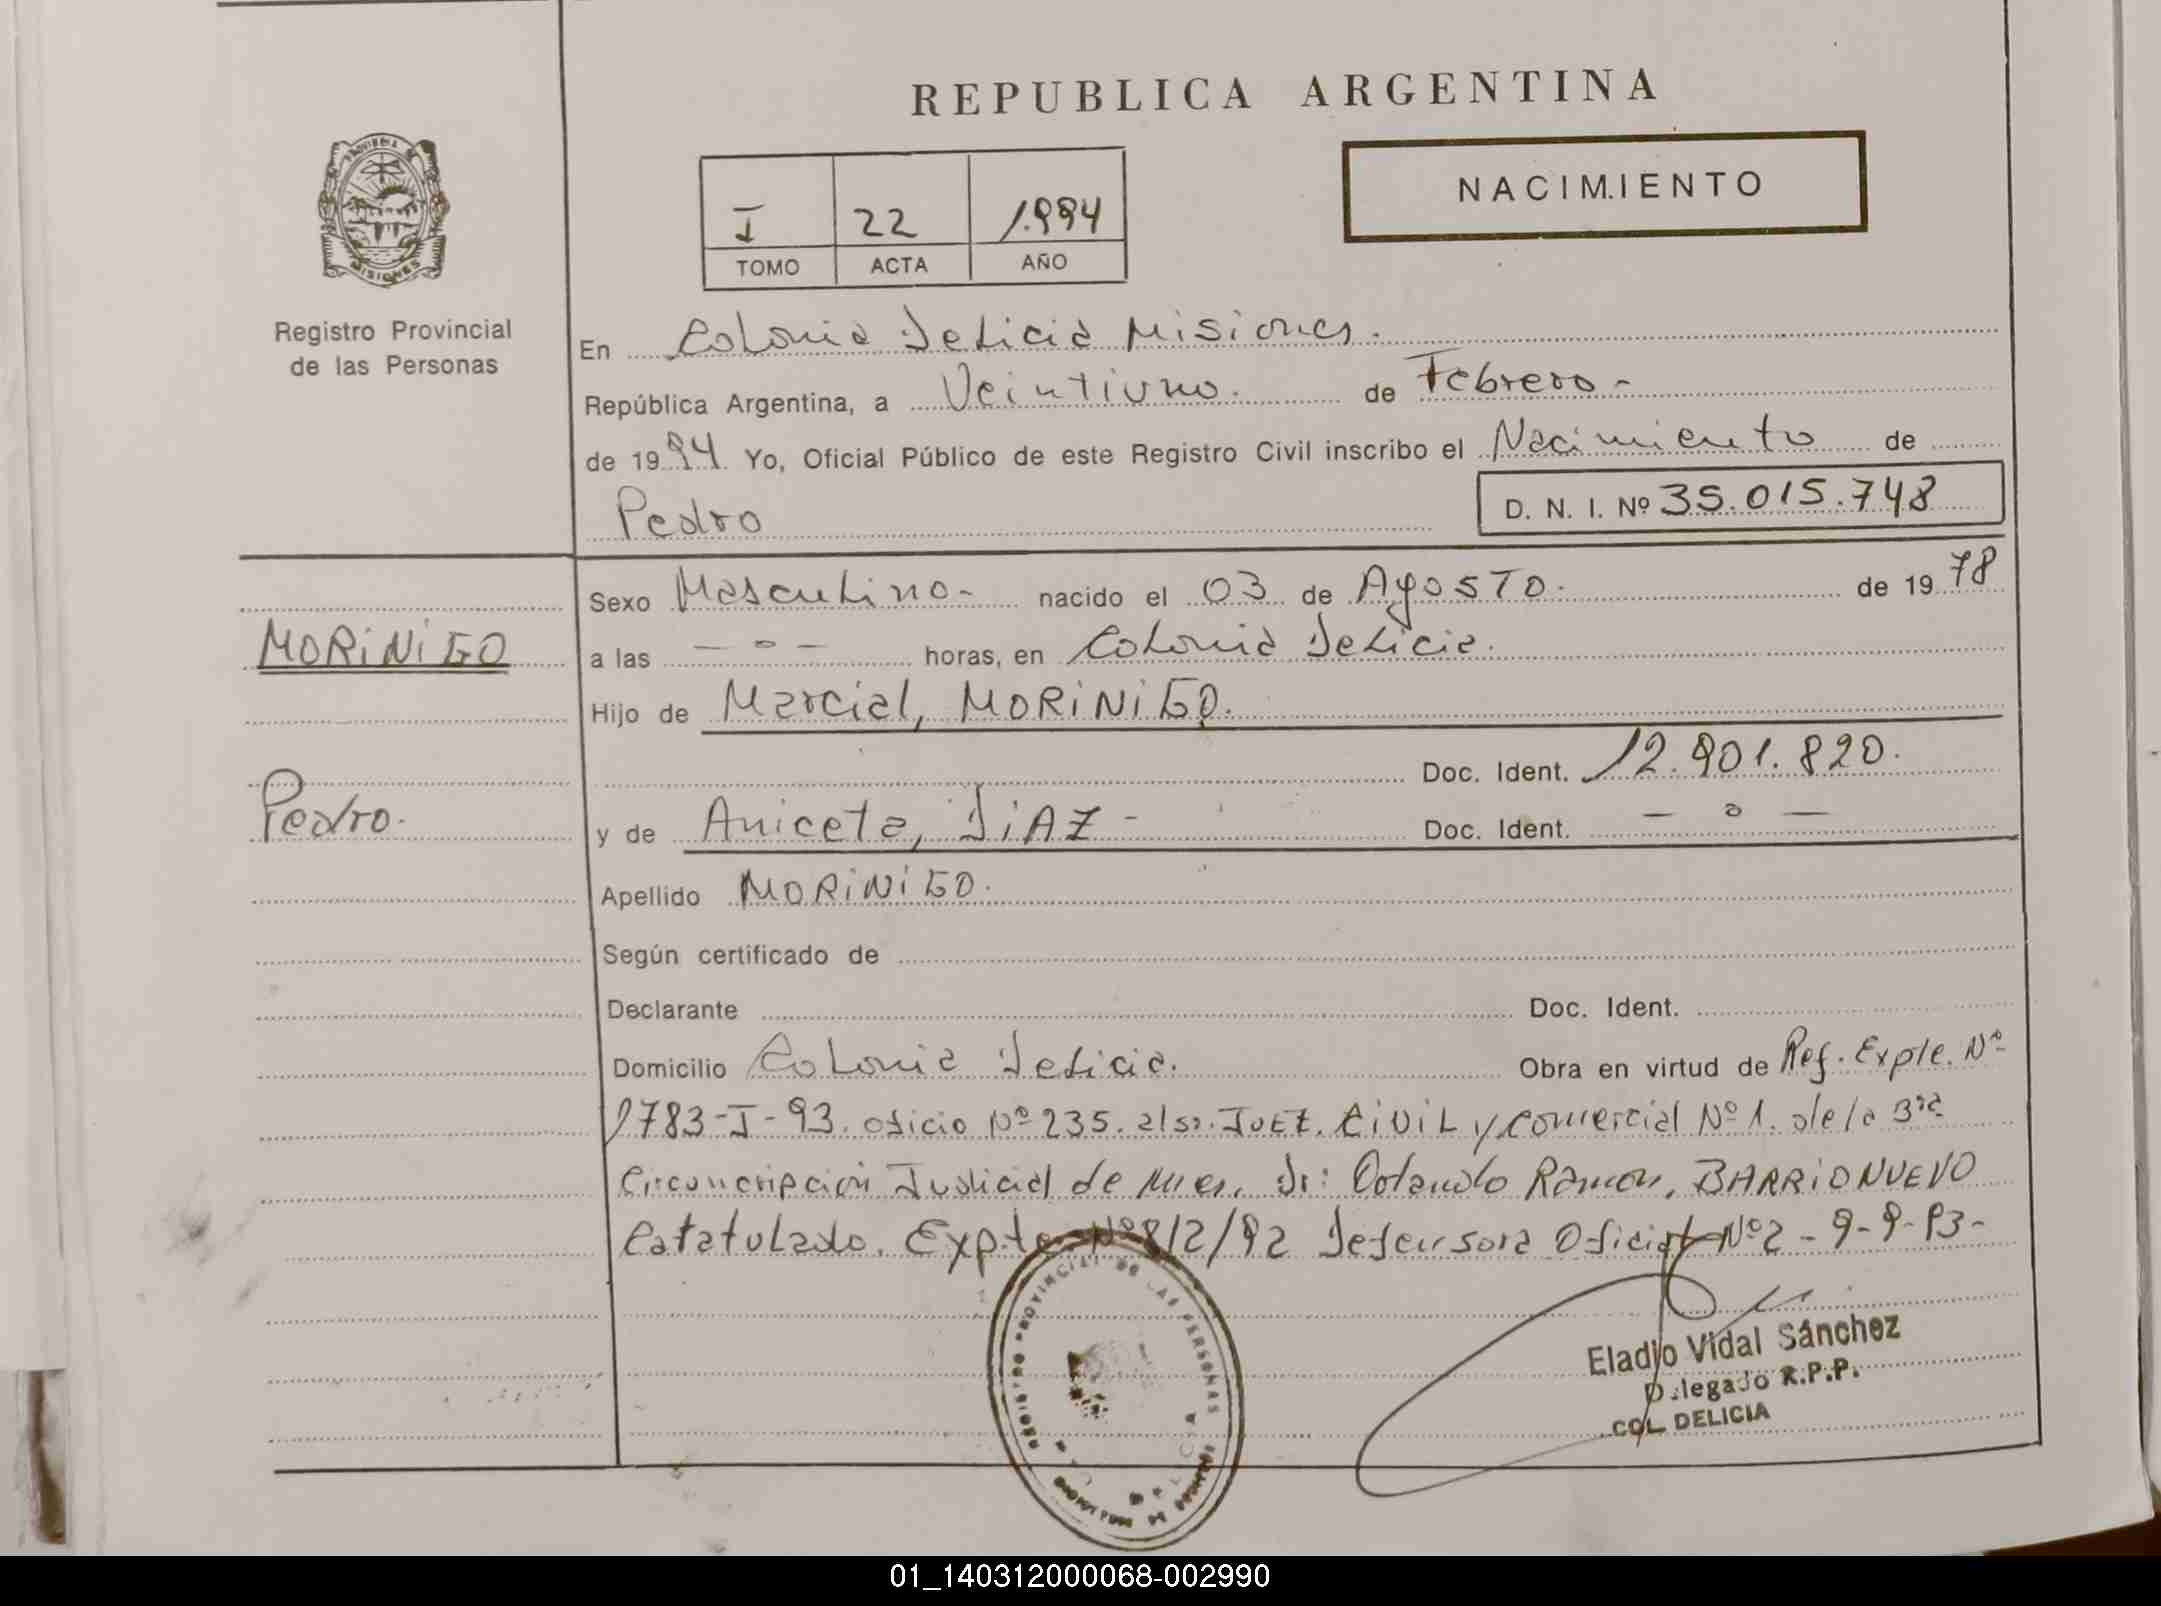 REPUBLICA ARGENTINA
PROVINCIA DE
MISIONES
Registro Provincial
de las Personas
I 22 1.994
TOMO ACTA AÑO
NACIMIENTO
En Colonia Delicia Misiones.
República Argentina, a Veintiuno. de Febrero.-
de 1994. Yo, Oficial Público de este Registro Civil inscribo el Nacimiento de
Pedro D. N. I. Nº 35.015.748
Sexo Masculino- nacido el 03 de Agosto. de 1978
MORiNiGO
a las — o — horas, en Colonia Delicia.
Hijo de Marcial, MORiNiGO.
Doc. Ident. 12.901.820.
Pedro.
y de Aniceta, DiAZ - Doc. Ident. — o —
Apellido MORiNiGO.
Según certificado de
Declarante Doc. Ident.
Domicilio Colonia Delicia. Obra en virtud de Ref. Expte. Nº
1783-I-93. oficio Nº 235. al sr. JUEZ. CiViL y comercial Nº 1. de la 3ra
Circuncripción Judicial de Mnes. Dr: Orlando Ramon, BARRiONUEVO
Catatulado. Expte. Nº 812/92 Defensora Oficial Nº 2 - 9-9-93-
REGISTRO PROVINCIAL DE LAS PERSONAS
Eladio Vidal Sánchez
Delegado R.P.P.
COL. DELICIA
01_140312000068-002990